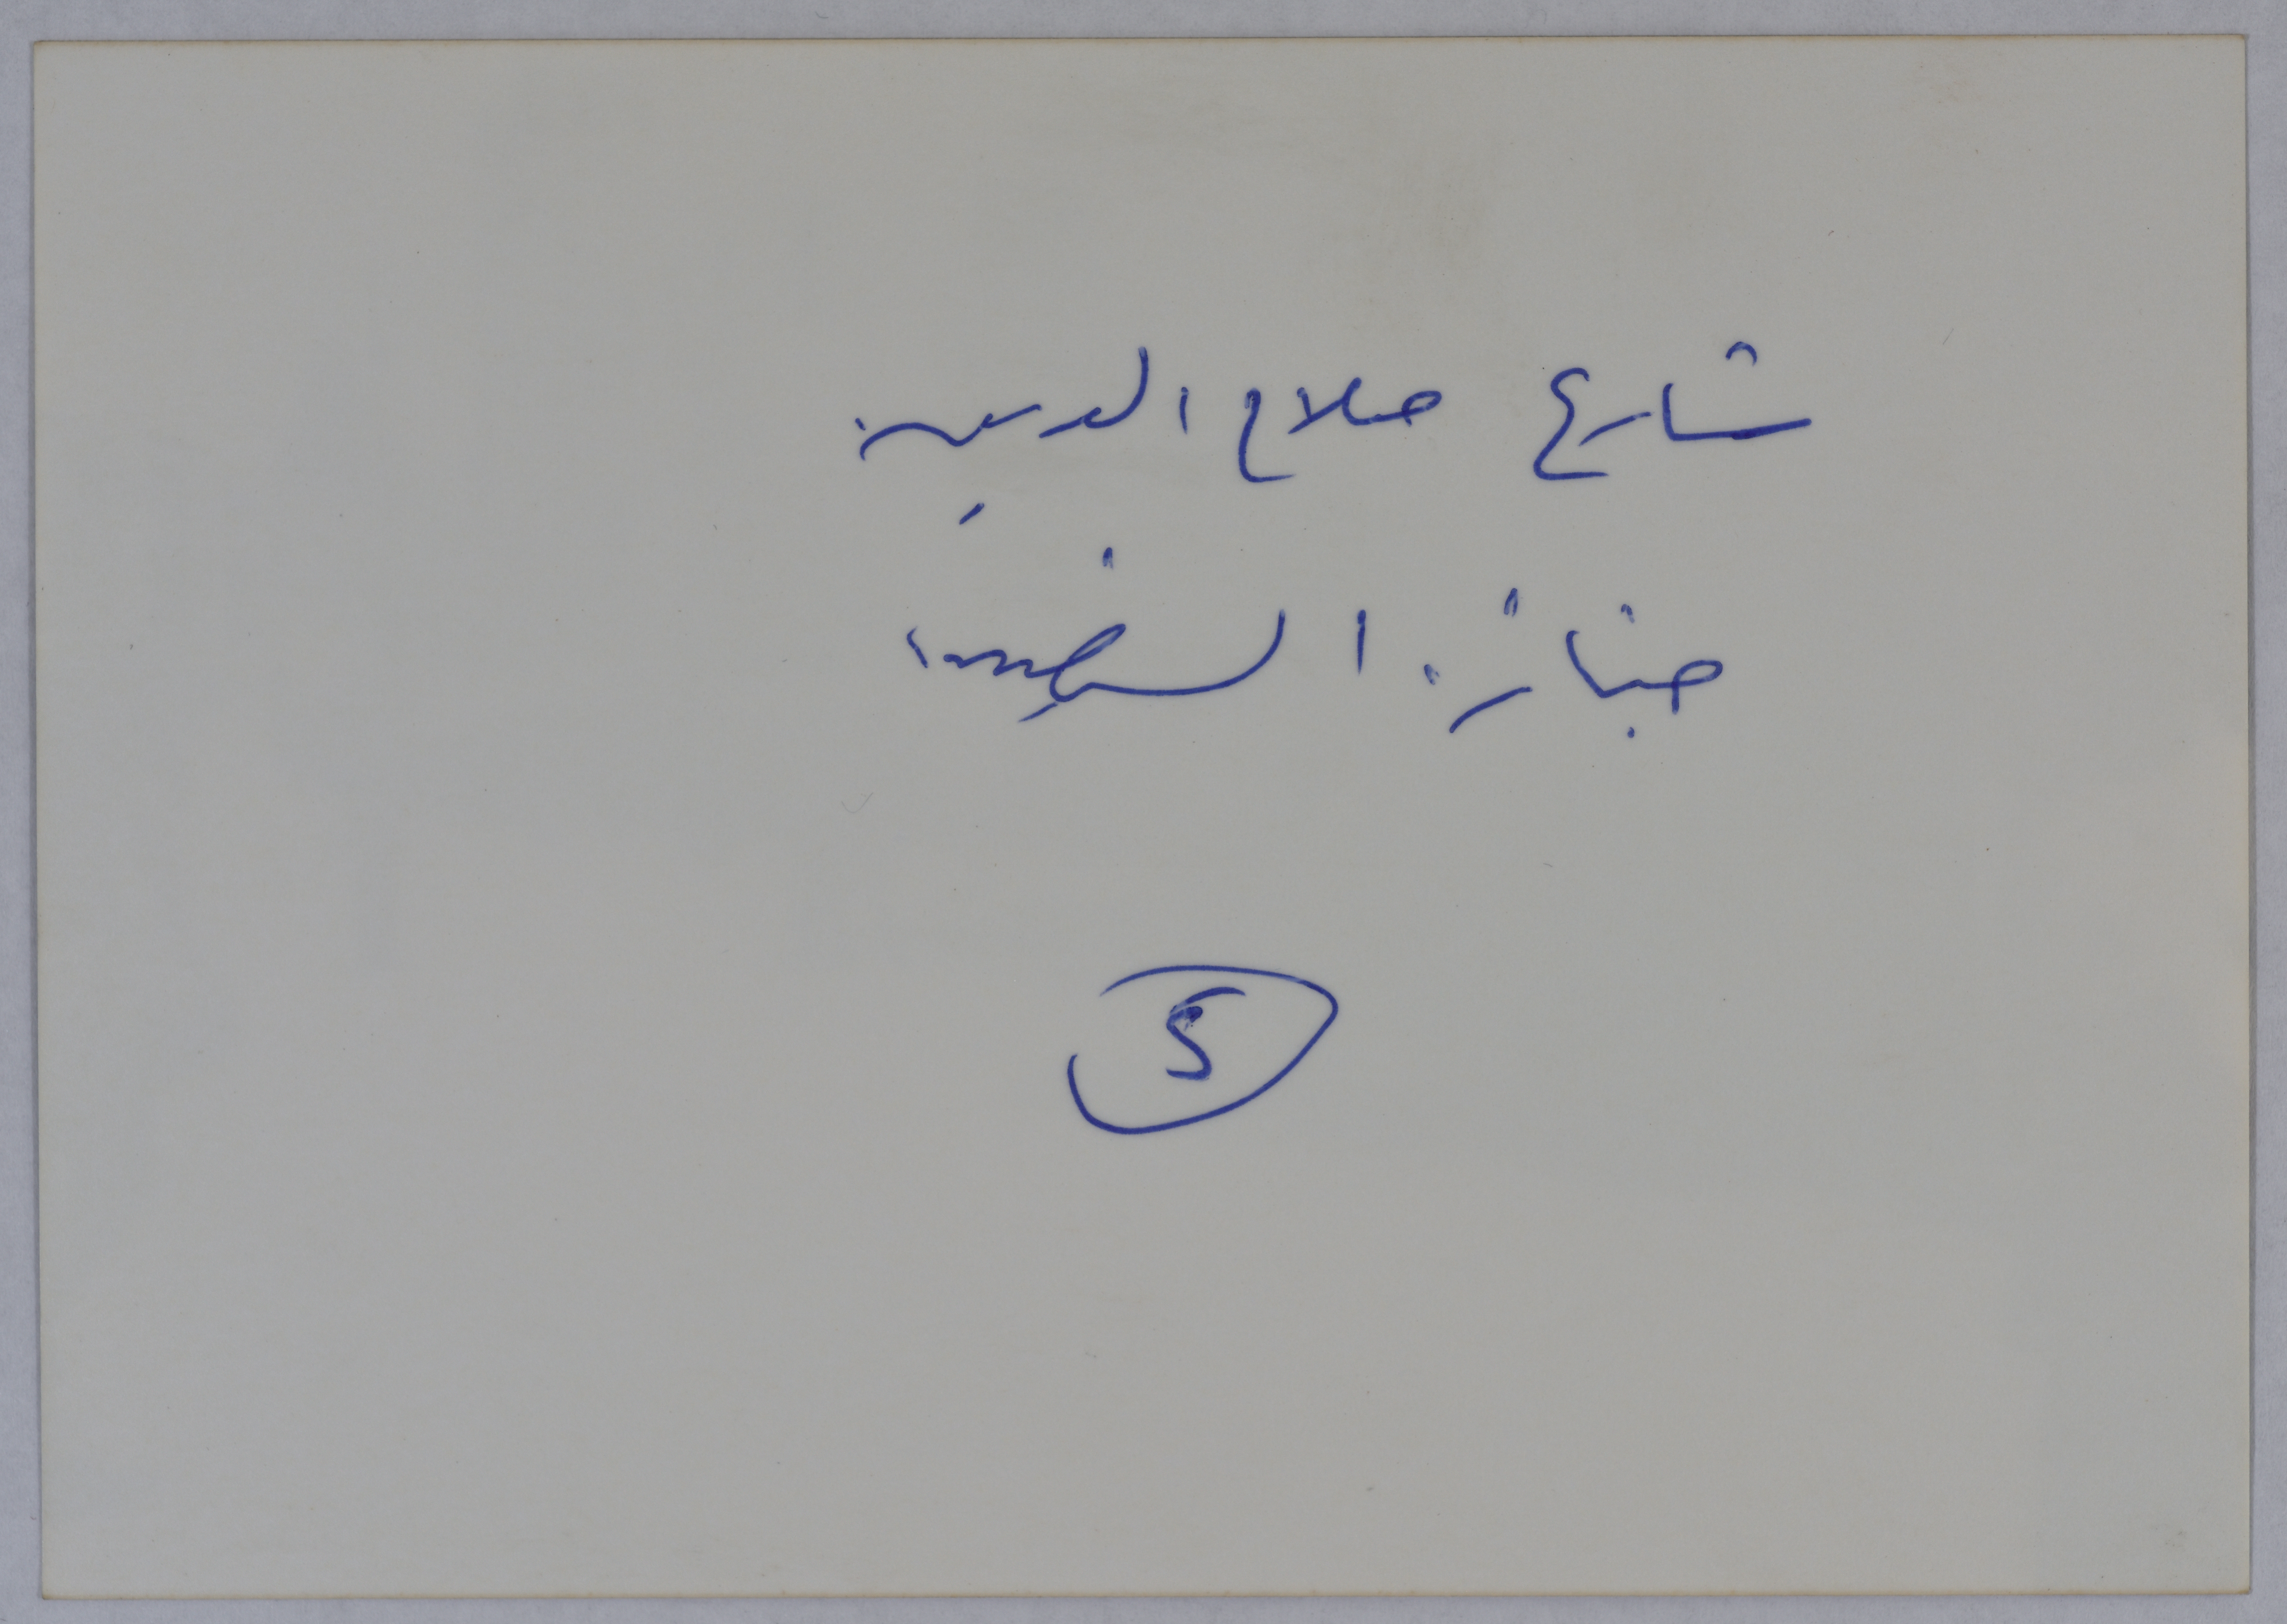 شارع صلاح الدين
جنازة الخطيب
5